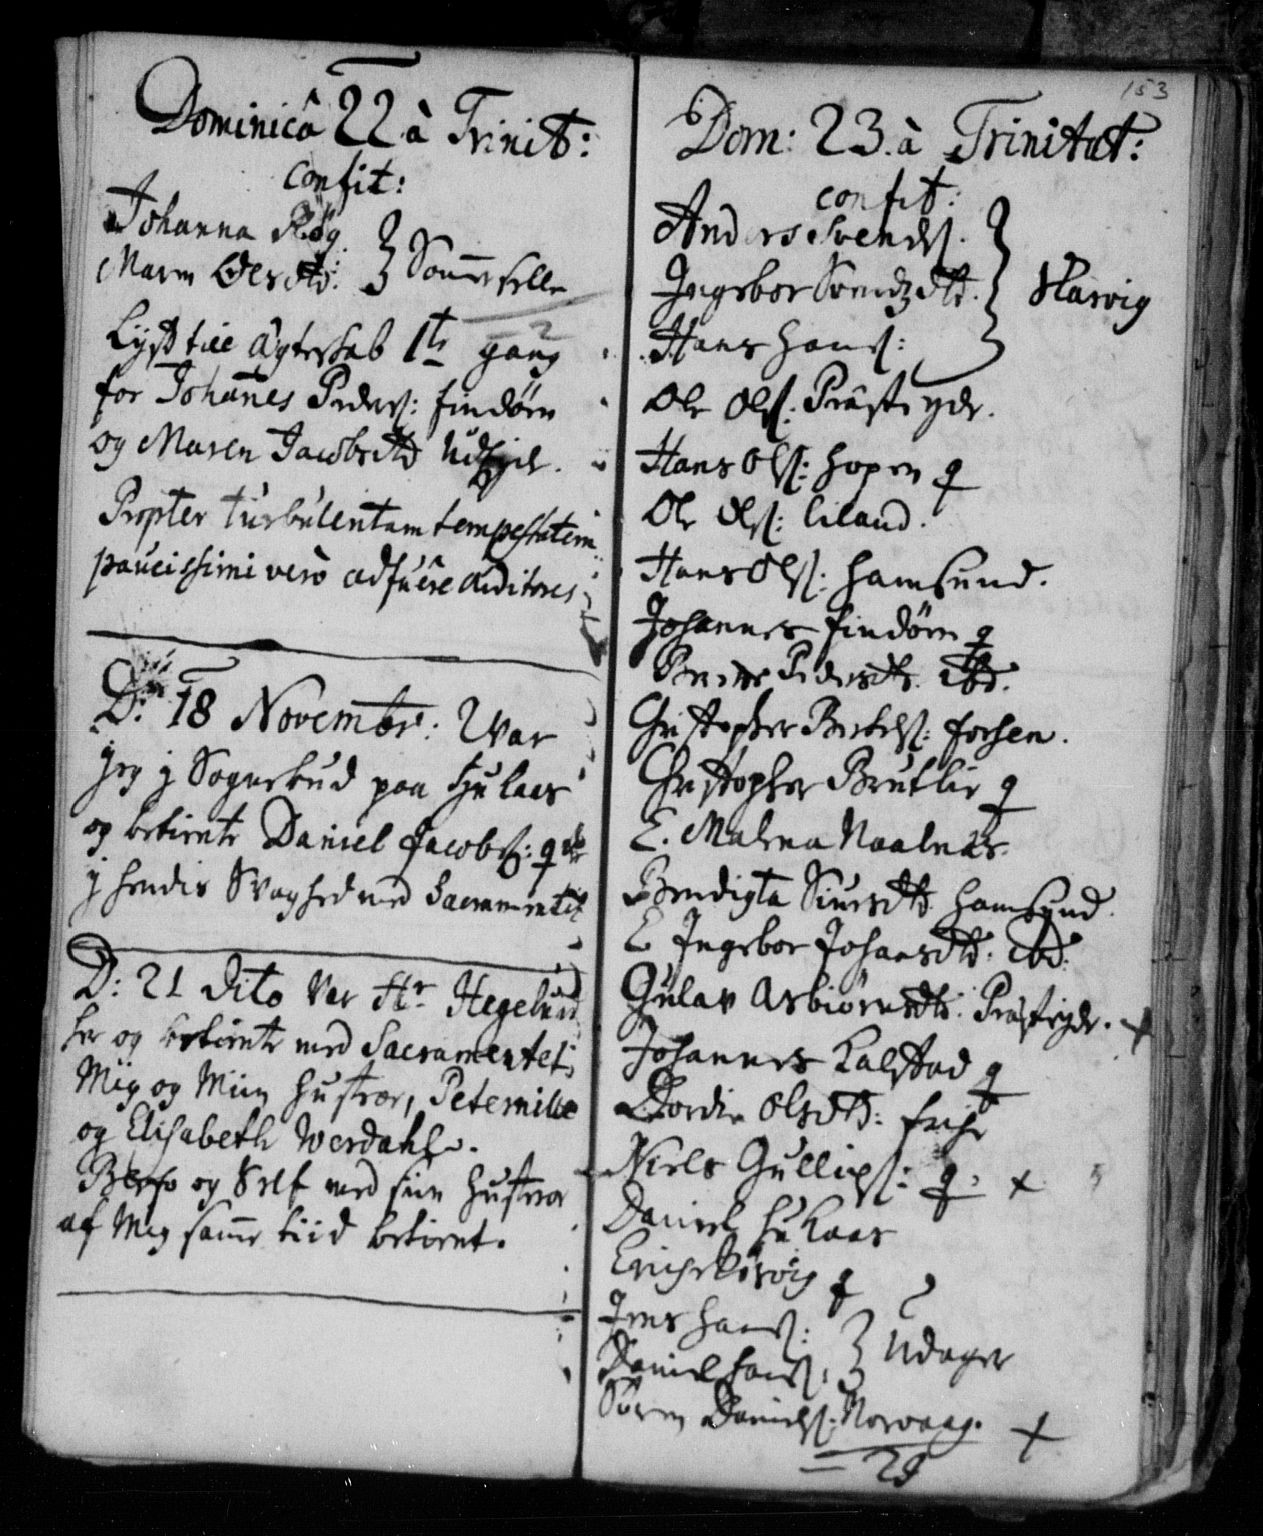 Dominicâ 22 à Trinit:
confit:
Johanna Røg
Maren Olesdtr: } Sommersell
2
Lyst till Ægteskab 1te gang
for Johannes Peders: Findøen
og Maren Jacobsdtr
Propter turbulentam tempestatem
paucissimi vero adfuêre auditores
D: 18 Novembr: Var
jeg j Sognebud paa Hulaas
og betiente Daniel Jacobs: q
j hendis Svaghed med Sacramentet
D: 21 dito var Hr Hegelund
her og betiente med Sacramentet
Mig og Min Hustroe, Peternille
og Elisabeth Werdahl.
og Self med sin Hustroe
af Mig samme tiid betient.
153
Dom: 23 à Trinitat:
confit:
Anders Svends:
Ingebor Svendzdtr. } Skarvig
Hans Hans:
Ole Ols: Præstegde.
Hans Ols: Hopen q
Ole Ols: Liland.
Hans Ols: Hamsund.
Johannes Findøen q
Pedersdtr. Ibd.
Christopher Bertels: Forsen.
Christopher Brutlie q
E. Malena Naalnæs.
Bendigta Siursdtr Hamsund.
E Ingebor Johansdtr. Ibd:
Gulav Asbiørnsdtr. Præstegde. +
Johannes Kalstad q
Dordie Olsdtr:
Niels Gullips: q. +
Daniel Hulaas
Erich q
Jens Hans: } Udager
Daniel Hans:
Søren Daniels: Norvaag. +